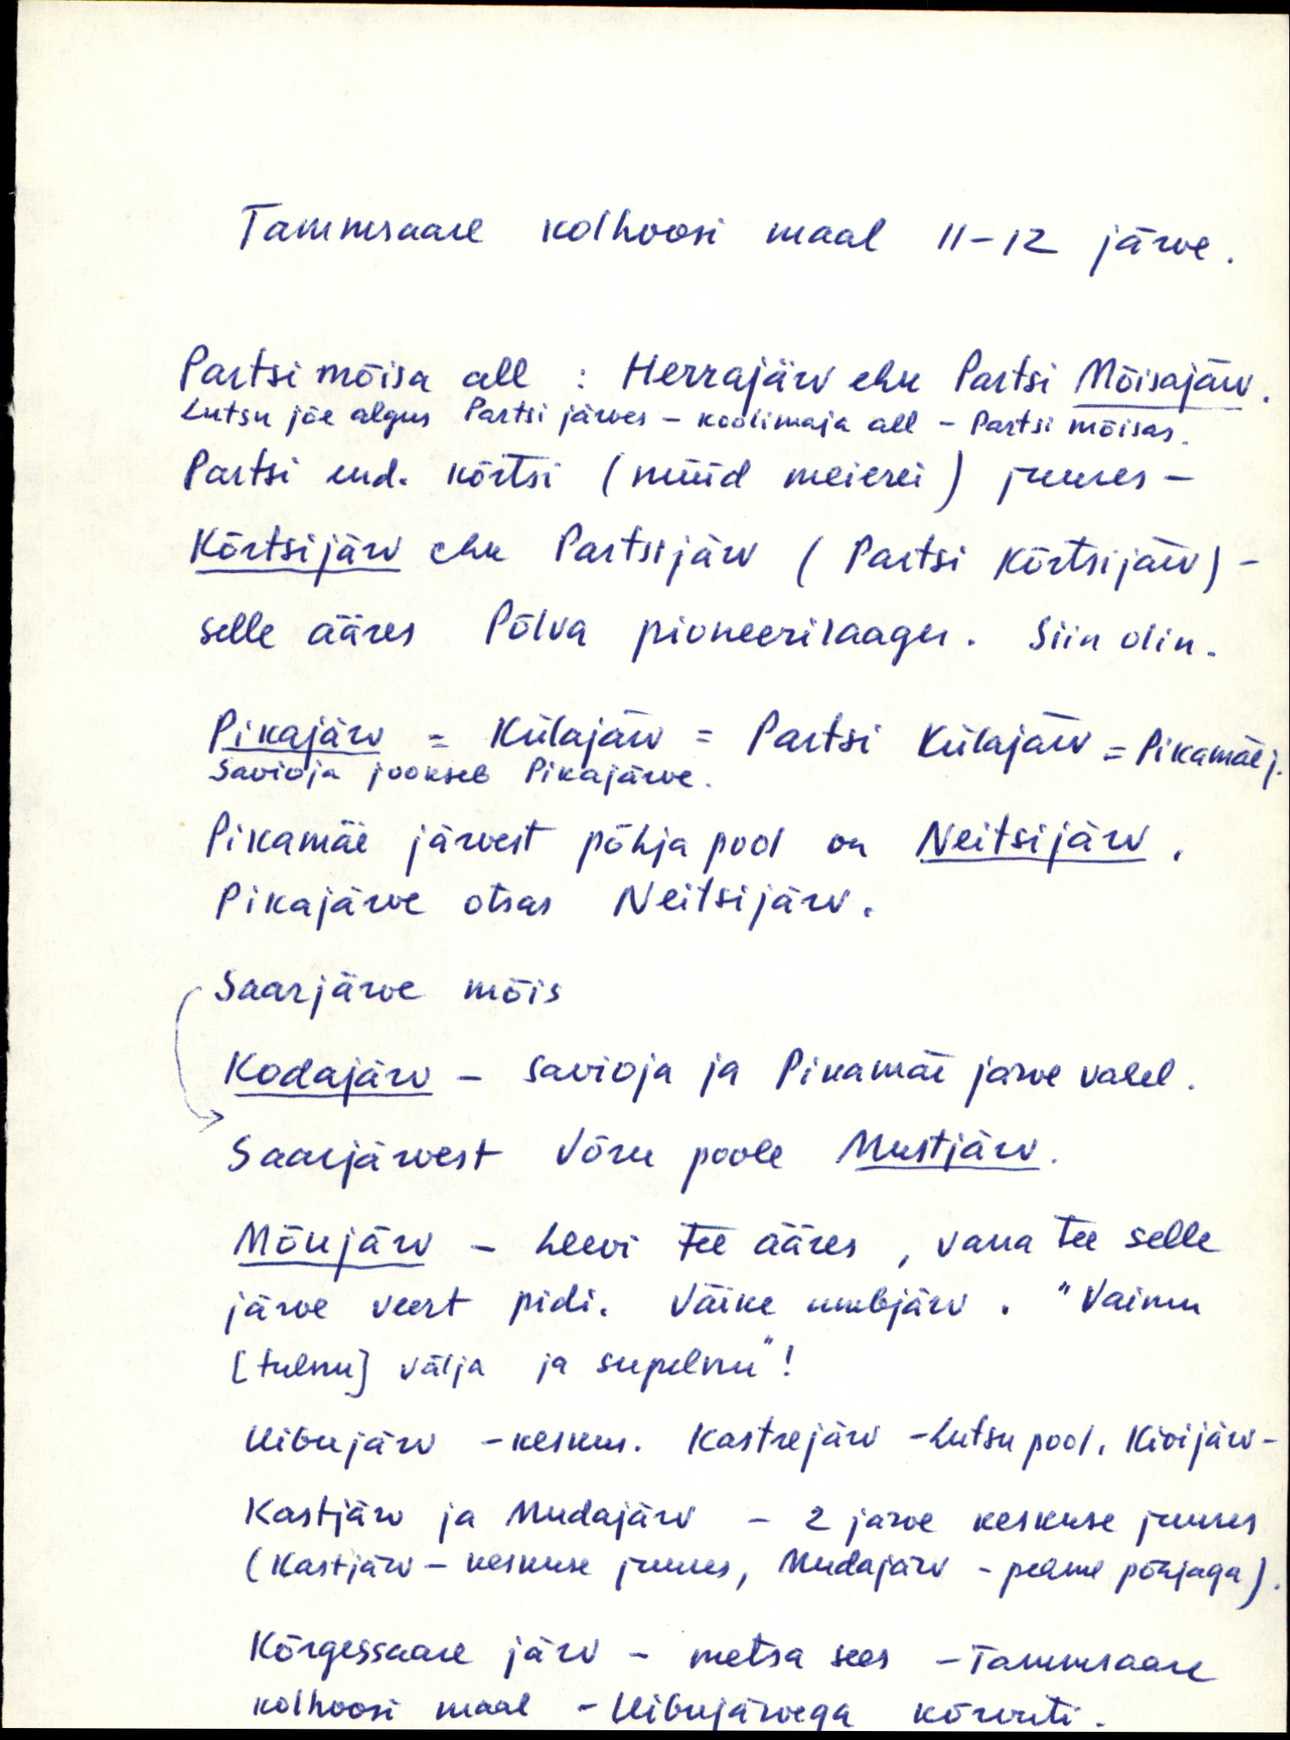 Tammsaare kolhoosi maal 11-12 järve.
Partsi mõisa all : Herrajärv ehk Partsi Mõisajärv.
Lutsu jõe algus Partsi järves – koolimaja all – Partsi mõisas.
Partsi end. kõrtsi (nüüd meierei) juures –
Kõrtsijärv ehk Partsijärv (Partsi Kõrtsijärv) –
selle ääres Põlva pioneerilaager. Siin olin.
Pikajärv = Külajärv = Partsi Külajärv = Pikamäe j.
Savioja jookseb Pikajärve.
Pikamäe järvest põhja pool on Neitsijärv.
Pikajärve otsas Neitsijärv.
Saarjärve mõis
Kodajärv – Savioja ja Pikamäe järve vahel.
Saarjärvest Võru poole Mustjärv.
Mõujärv – Leevi tee ääres, vana tee selle
järve veert pidi. Väike umbjärv. "Vaimu
[tulnu] välja ja supelnu"!
Uibujärv – keskus. Kastrejärv – Lutsu pool. Kivijärv –
Kastjärv ja Mudajärv – 2 järve keskuse juures
(Kastjärv – keskuse juures, Mudajärv – pehme põhjaga).
Kõrgessaare järv – metsa sees – Tammsaare
kolhoosi maal – Uibujärvega kõrvuti.